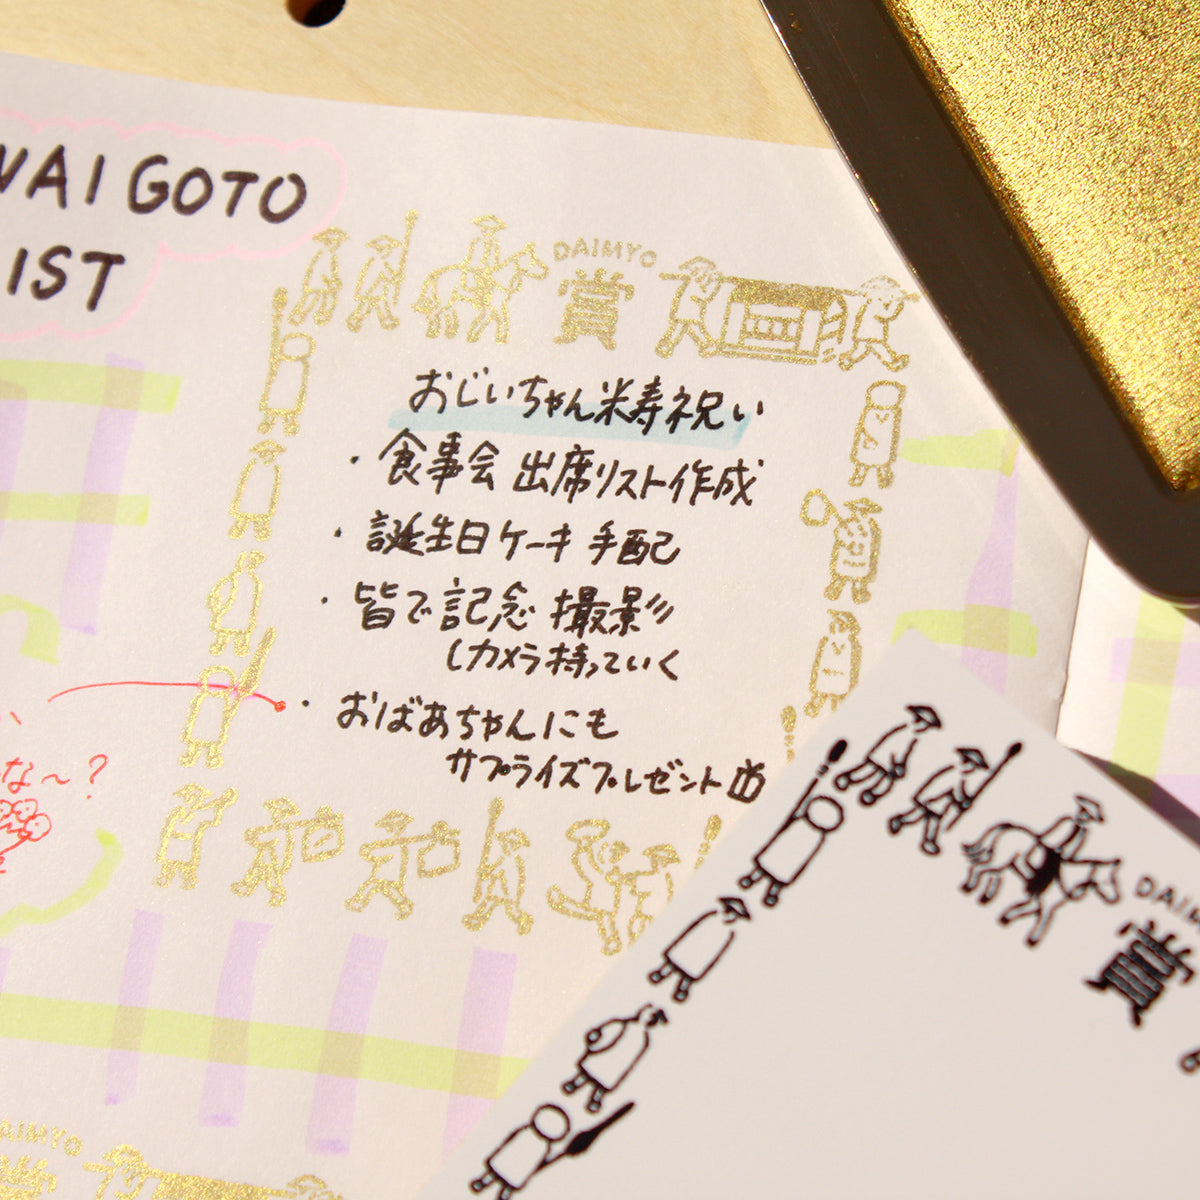 WAI GOTO
LIST
DAIMYO
賞
おじいちゃん米寿祝い
・食事会 出席リスト作成
・誕生日ケーキ 手配
・皆で記念撮影
しカメラ持っていく
・おばあちゃんにも
サプライズプレゼント
な〜?
DAIM
賞
AIMYO